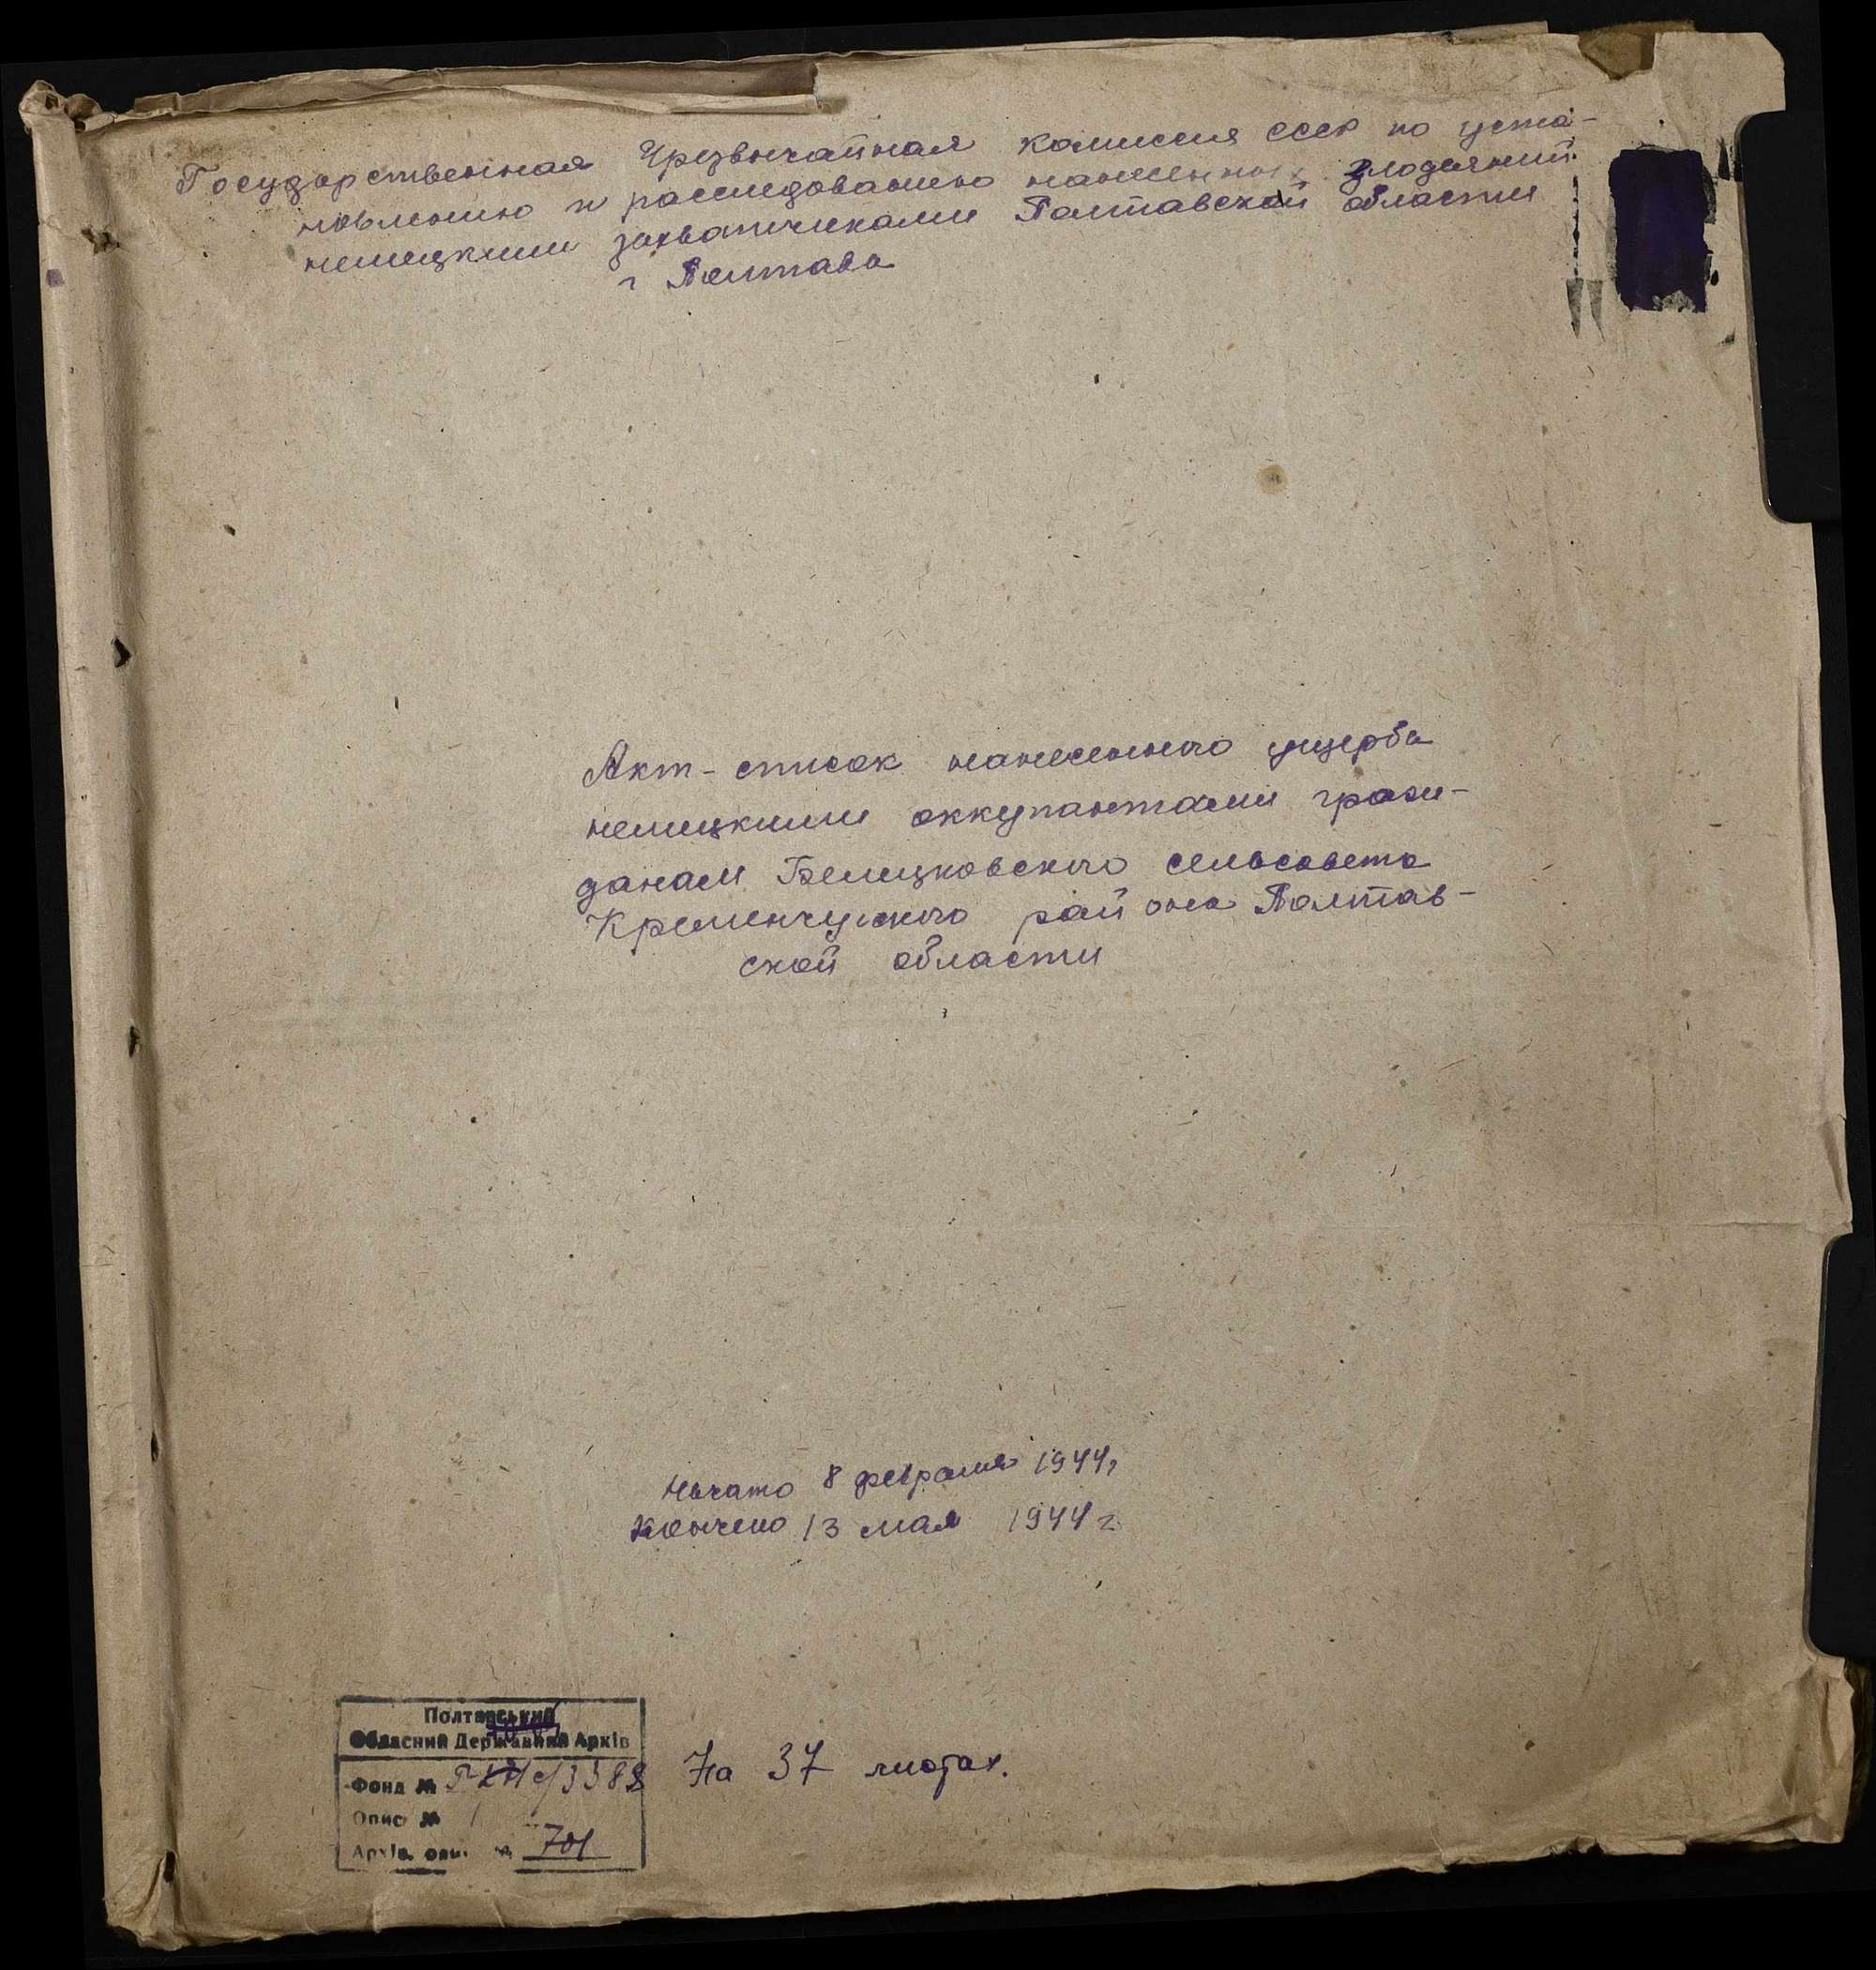 Государственная Чрезвычайная комиссия СССР по уста-
новлению и расследованию нанесенных злодеяний
немецкими захватчиками Полтавской области
г Полтава
Акт-список нанесенного ущерба
немецкими оккупантами граж-
данам Белецковского сельсовета
Кременчугского района Полтав-
ской области
Начато 8 февраля 1944г
Кончено 13 мая 1944 г.
Полтавський
Обласний Державний Архів
Фонд № 3388
Опис № 1
Архів. 701
На 37 листах.